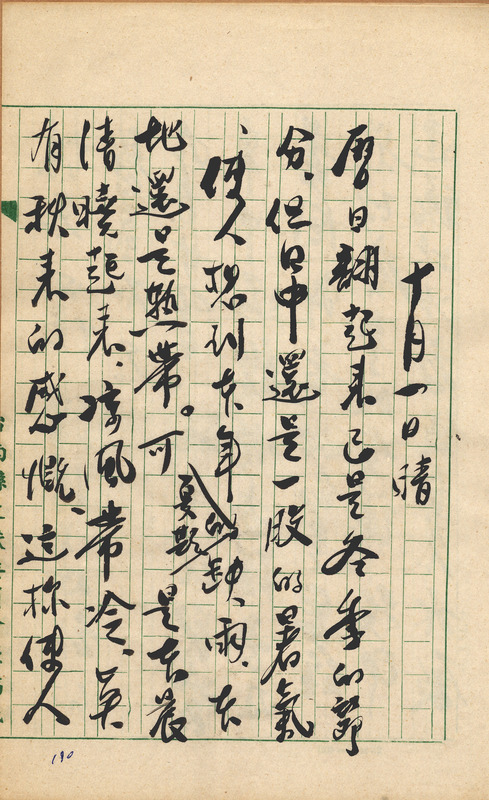 十月一日晴
曆日翻起來已是冬季的節
分、但日中還是一股的暑氣
、使人想到本年夏期的缺雨、本
地還是熱帶。可是在晨
清曉起來、涼風帶冷、真
有秋來的感慨、這樣使人
190